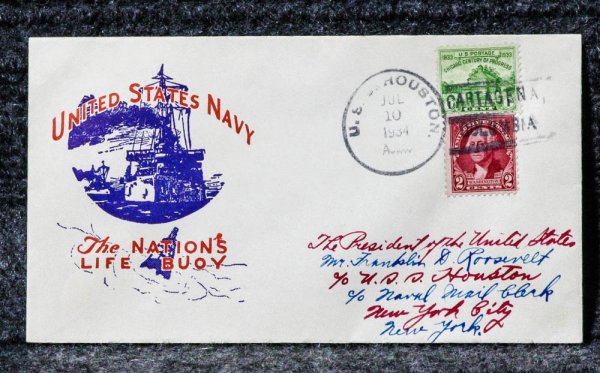 UNITED STATES NAVY
The NATION'S
LIFE BUOY
U.S.S. HOUSTON
JUL
10
1934
A.M.
1833 U.S. POSTAGE 1933
CHICAGO CENTURY OF PROGRESS
CARTAGENA,
COLOMBIA
2 WASHINGTON 2
CENTS
The President of the United States
Mr. Franklin D. Roosevelt
c/o U.S.S. Houston
c/o Naval Mail Clerk
New York City
New York.